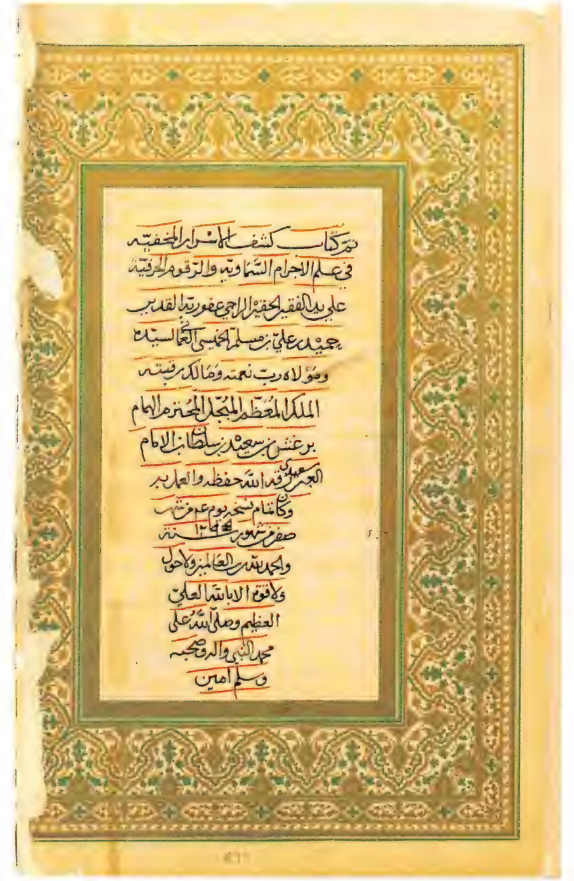 تم كتاب كشف الاسرار المخفيه
في علم الاجرام السماويه والرقوم الحرفية
على يد الفقير الحقير الراجي عفو ربه القدير
حميد بن علي بن مسلم الخميسي لسيده
ومولاه رب نعمته ومالك رقبته
الملك المعظم المبجل المحترم الهمام
برغش بن سعيد بن سلطان بن الامام
الله حفظه والعمل به
وكان تمام نسخه يوم من شهر
صفر من شهور سنة
والحمد لله رب العالمين ولا حول
ولا قوة الا بالله العلي
العظيم وصلى الله على
محمد النبي واله وصحبه
وسلم امين